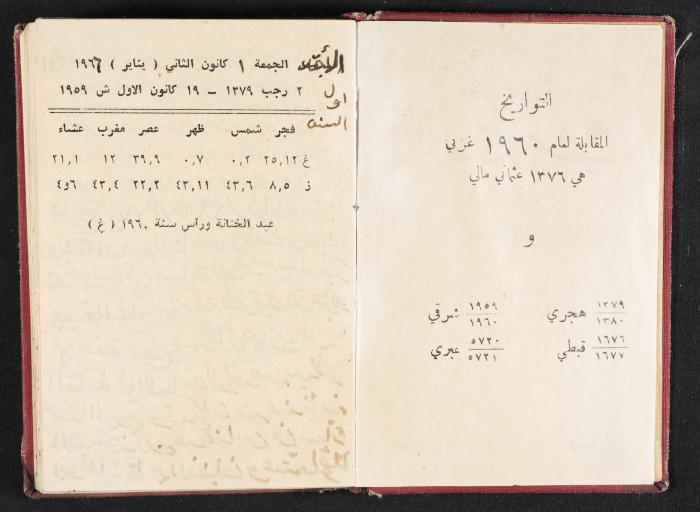 التواريخ
المقابلة لعام ١٩٦٠ غربي
هي ١٣٧٦ عثماني مالي
و
١٣٧٩ / ١٣٨٠ هجري ١٩٥٩ / ١٩٦٠ شرقي
١٦٧٦ / ١٦٧٧ قبطي ٥٧٢٠ / ٥٧٢١ عبري
الجمعة ١ كانون الثاني ( يناير ) ١٩٦٦
٢ رجب ١٣٧٩ – ١٩ كانون الاول ش ١٩٥٩
اول
السنه
فجر شمس ظهر عصر مغرب عشاء
غ ٢٥,١٢ ٠,٢ ٠,٧ ٣٩,٩ ١٢ ٢١,١
ز ٨,٥ ٤٣,٦ ٤٣,١١ ٢٢,٢ ٤٣,٤ ٦و٤
عيد الختانة ورأس سنة ١٩٦٠ ( غ )